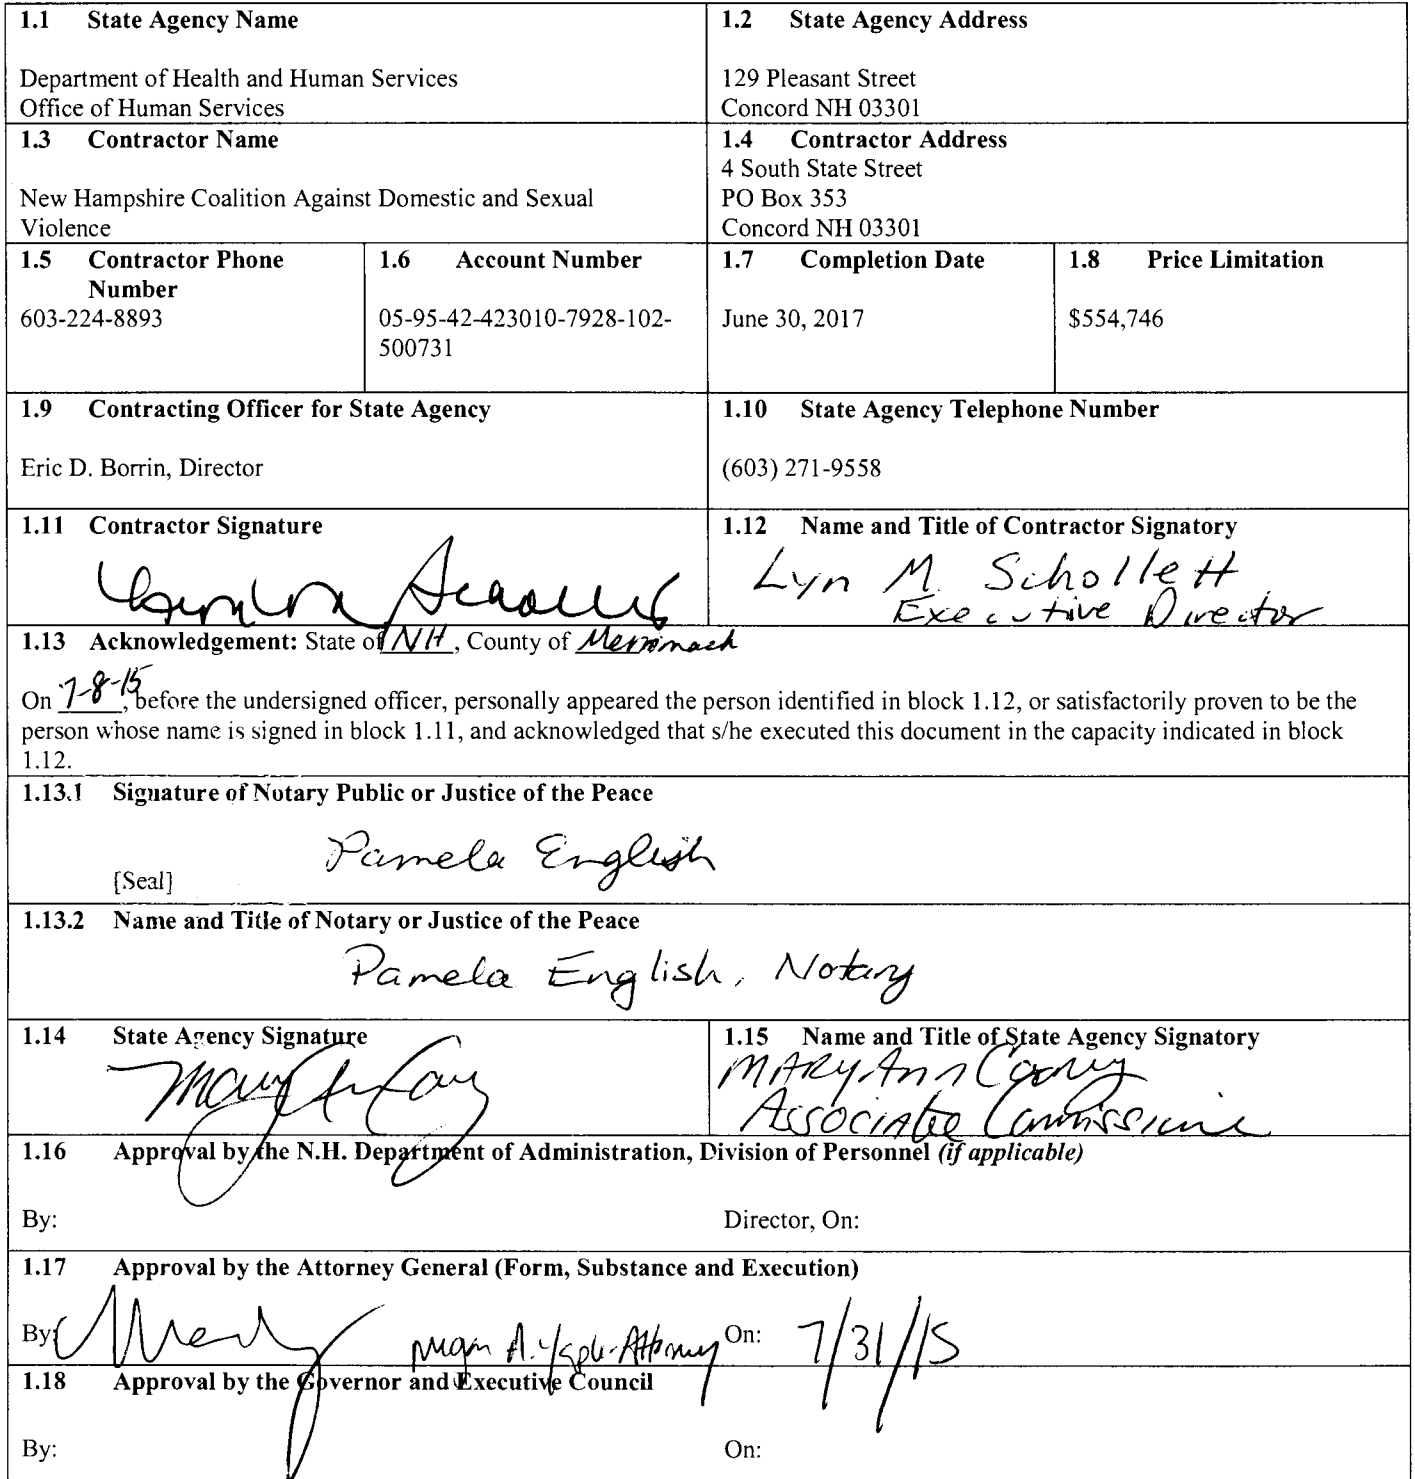 1.1 State Agency Name
Department of Health and Human Services
Office of Human Services
1.2 State Agency Address
129 Pleasant Street
Concord NH 03301
1.3 Contractor Name
New Hampshire Coalition Against Domestic and Sexual
Violence
1.4 Contractor Address
4 South State Street
PO Box 353
Concord NH 03301
1.5 Contractor Phone
Number
603-224-8893
1.6 Account Number
05-95-42-423010-7928-102-
500731
1.7 Completion Date
June 30, 2017
1.8 Price Limitation
$554,746
1.9 Contracting Officer for State Agency
Eric D. Borrin, Director
1.10 State Agency Telephone Number
(603) 271-9558
1.11 Contractor Signature
1.12 Name and Title of Contractor Signatory
Lyn M. Schollett
Executive Director
1.13 Acknowledgement: State of NH, County of Merrimack
On 7-8-15, before the undersigned officer, personally appeared the person identified in block 1.12, or satisfactorily proven to be the
person whose name is signed in block 1.11, and acknowledged that s/he executed this document in the capacity indicated in block
1.12.
1.13.1 Signature of Notary Public or Justice of the Peace
Pamela English
[Seal]
1.13.2 Name and Title of Notary or Justice of the Peace
Pamela English, Notary
1.14 State Agency Signature
1.15 Name and Title of State Agency Signatory
MARY Ann Cooney
Associate Commissioner
1.16 Approval by the N.H. Department of Administration, Division of Personnel (if applicable)
By: Director, On:
1.17 Approval by the Attorney General (Form, Substance and Execution)
By: A. Attorney On: 7/31/15
1.18 Approval by the Governor and Executive Council
By: On: